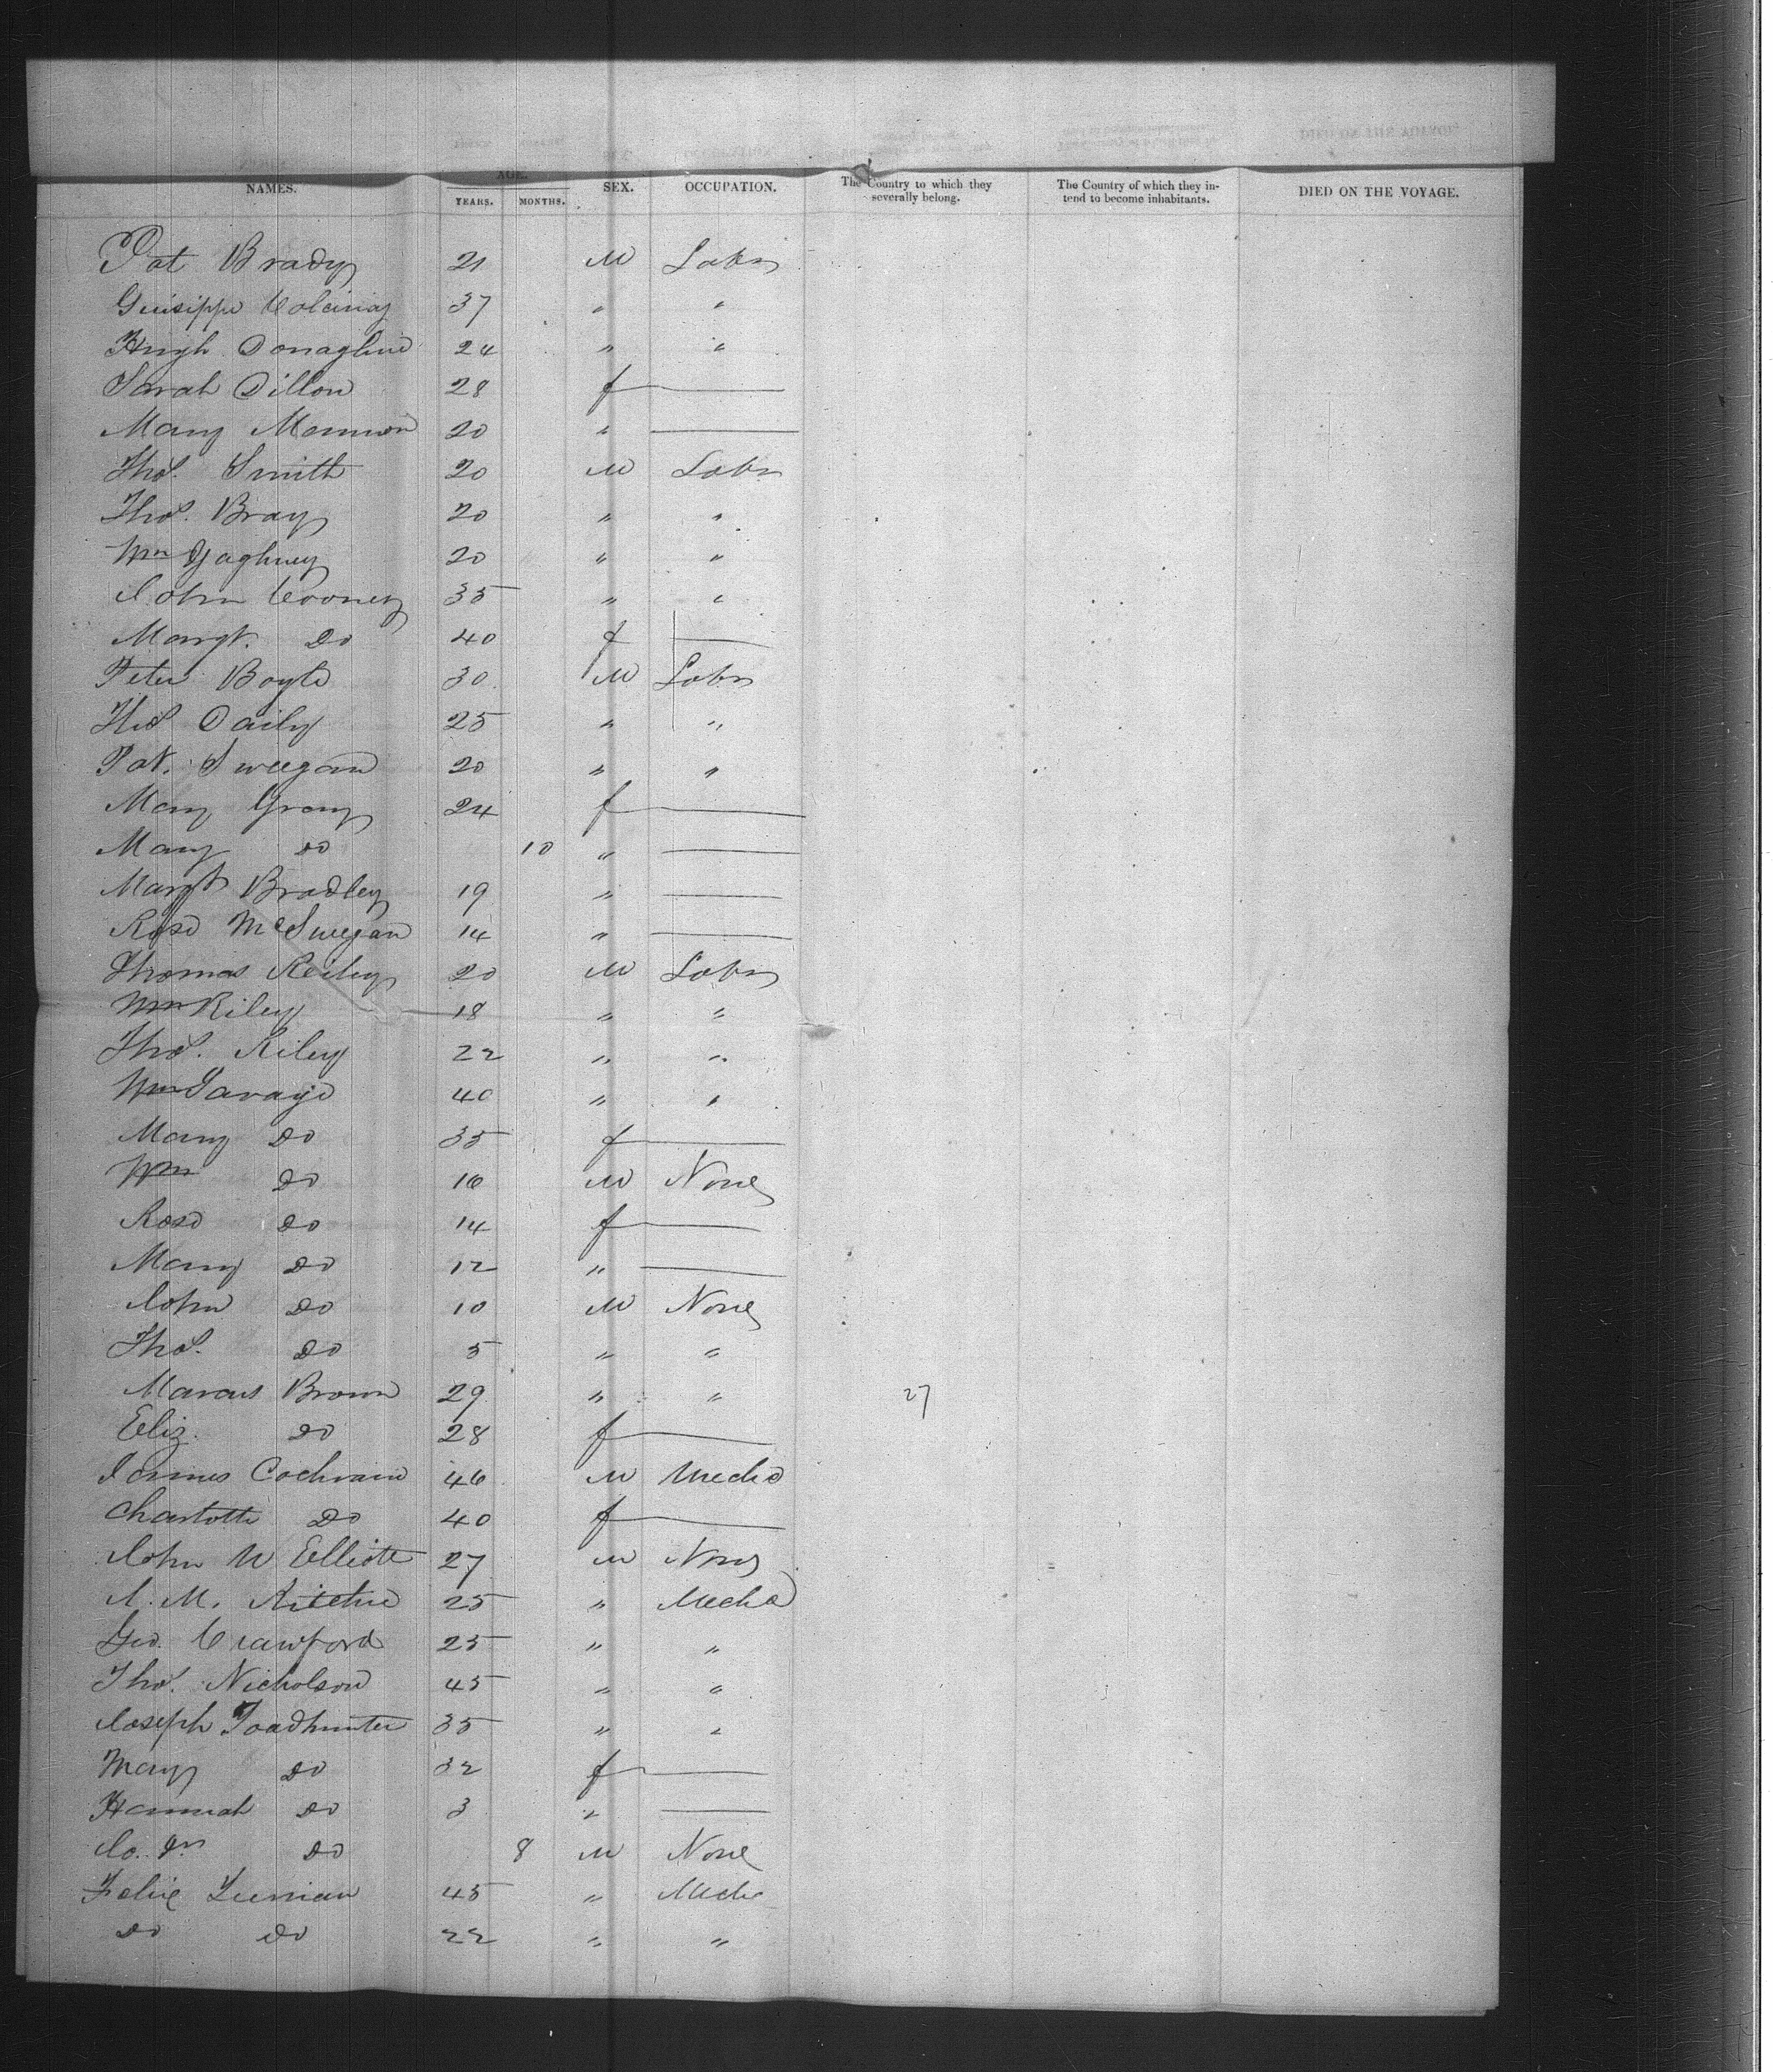 NAMES. AGE. SEX. OCCUPATION. The Country to which they severally belong. The Country of which they intend to become inhabitants. DIED ON THE VOYAGE.
YEARS. MONTHS.
Pat Brady 21 M Labr
Guisippe 37 " "
Hugh Donaghue 24 " "
Sarah Dillon 28 f —
Mary Mannion 20 " —
Thos. Smith 20 M Labr
Thos. Bray 20 " "
Wm Gaghney 20 " "
John Cooney 35 " "
Margt. Do 40 f —
Peter Boyle 30 M Labr
Thos Daily 25 " "
Pat. Sweegan 20 " "
Mary Gray 24 f —
Mary Do 10 " —
Margt Bradley 19 " —
Rose McSwegan 14 " —
Thomas Reiley 20 M Labr
Wm Riley 18 " "
Thos. Riley 22 " "
Wm Savage 40 " "
Mary Do 35 f —
Wm Do 16 M None
Rose Do 14 f —
Mary Do 12 " —
John Do 10 M None
Thos. Do 5 " "
Marcus Brown 29 " " 27
Eliz. Do 28 f —
James Cochrane 46 M Mecha
Charlotte Do 40 f —
John W Elliott 27 M None
A. M. Ritchie 25 " Mecha
Geo. Crawford 25 " "
Thos. Nicholson 45 " "
Joseph Toadhunter 35 " "
Mary Do 32 f —
Hannah Do 3 " —
Jo. Jn Do 8 M None
Felix 45 " Mecha
Do Do 22 " "